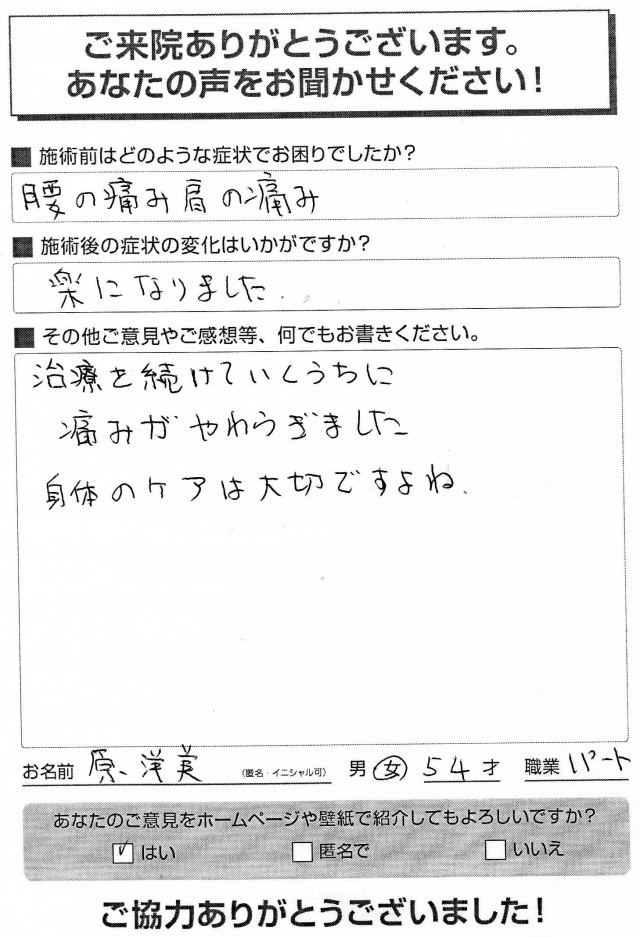 ご来院ありがとうございます。
あなたの声をお聞かせください！
■ 施術前はどのような症状でお困りでしたか？
腰の痛み肩の痛み
■ 施術後の症状の変化はいかがですか？
楽になりました.
■ その他ご意見やご感想等、何でもお書きください。
治療を続けていくうちに
痛みがやわらぎました
身体のケアは大切ですよね.
お名前 原 洋美 （匿名・イニシャル可） 男 女 54才 職業 パート
あなたのご意見をホームページや壁紙で紹介してもよろしいですか？
はい 匿名で いいえ
ご協力ありがとうございました！